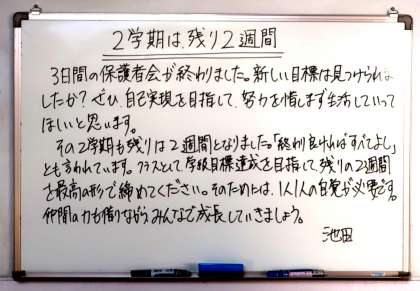 2学期は、残り2週間
3日間の保護者会が終わりました。新しい目標は見つけられま
したか？ぜひ、自己実現を目指して、努力を惜しまず生活していって
ほしいと思います。
その2学期も残りは2週間となりました。「終わり良ければすべてよし」
とも言われています。クラスとして、学級目標達成を目指して、残りの2週間
を最高の形で締めてください。そのためには、1人1人の自覚が必要です。
仲間の力も借りながら、みんなで成長していきましょう。
池田